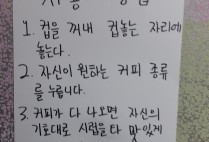 사용 방법
1. 컵을 꺼내 컵놓는 자리에
놓는다.
2. 자신이 원하는 커피 종류
를 누릅니다.
3. 커피가 다 나오면 자신의
기호대로 시럽을 타 맛있게